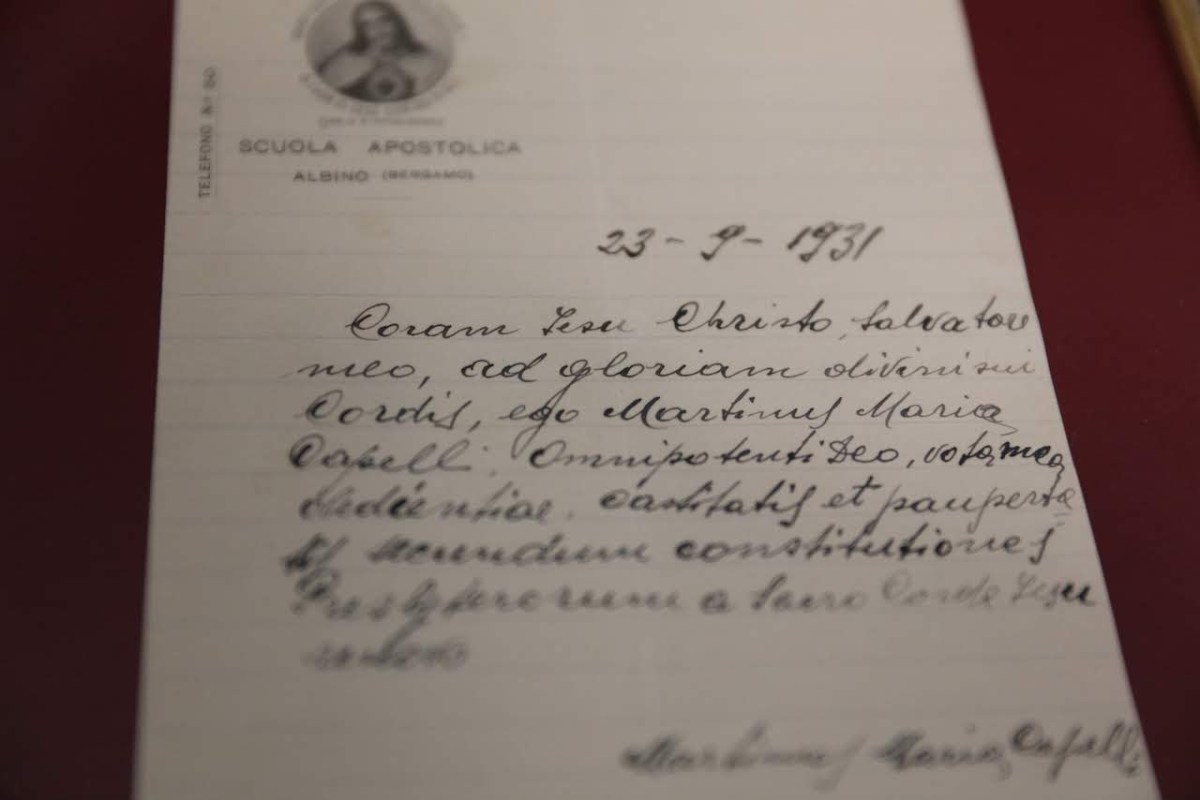 TELEFONO N° 80
SCUOLA APOSTOLICA
ALBINO (BERGAMO)
23 - 9 - 1931
Coram Jesu Christo, Salvatore
meo, ad gloriam divini sui
Cordis, ego Martinus Maria
Capelli, Omnipotenti Deo, vota mea
obedientiae, castitatis et pauperta
tis secundum constitutiones
Presbyterorum a Sacro Corde Jesu
Martinus Maria Capelli